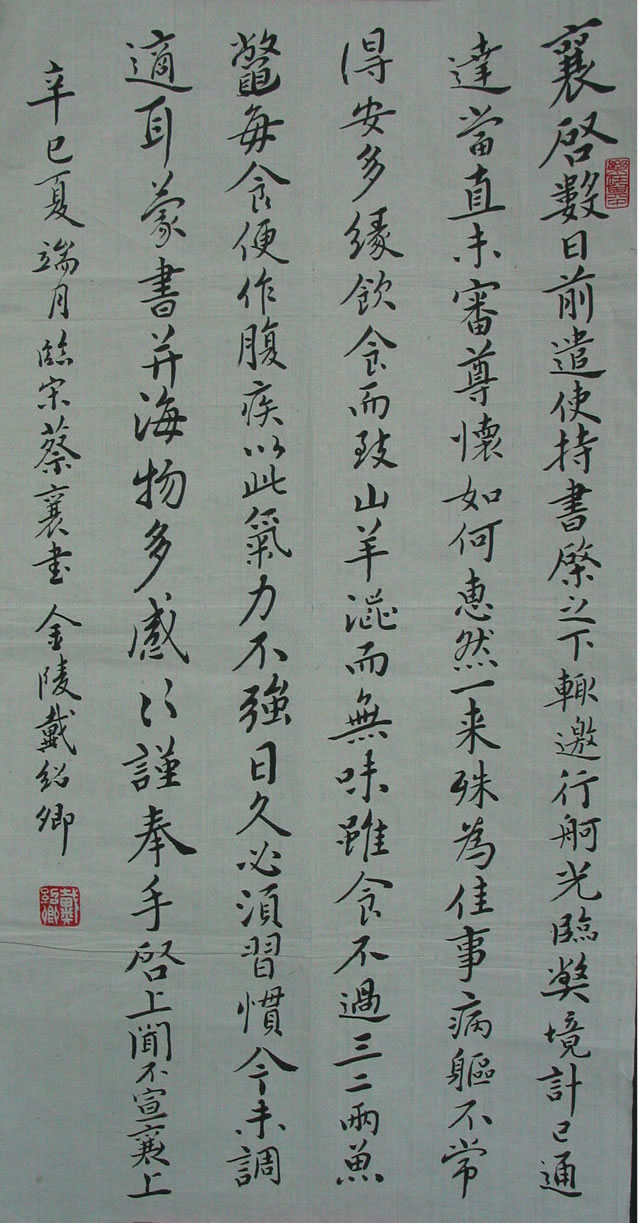 襄啓數日前遣使持書棨之下輙邀行舸光臨獘境計已通
達當直未審尊懷如何惠然一来殊為佳事病軀不常
得安多緣飲食而致山羊澁而無味雖食不過三二兩魚
鼈每食便作腹疾以此氣力不強日久必須習慣今未調
適耳蒙書并海物多感〻謹奉手啓上聞不宣襄上
辛巳夏端月臨宋蔡襄書 金陵戴紹卿
戴紹卿